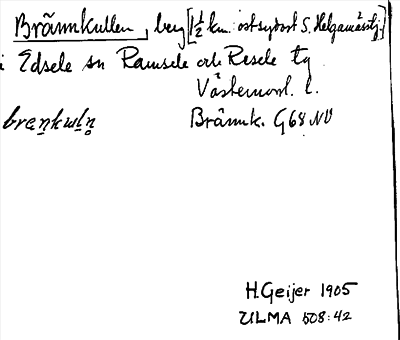 Brännkullen, berg [1½ km. ostsydost S. Helgamässtj.]
i Edsele sn Ramsele och Resele tg
Västernorrl. l.
brän̥kul̥n̥ Brännk. G68 NV
H. Geijer 1905
ULMA 508:42